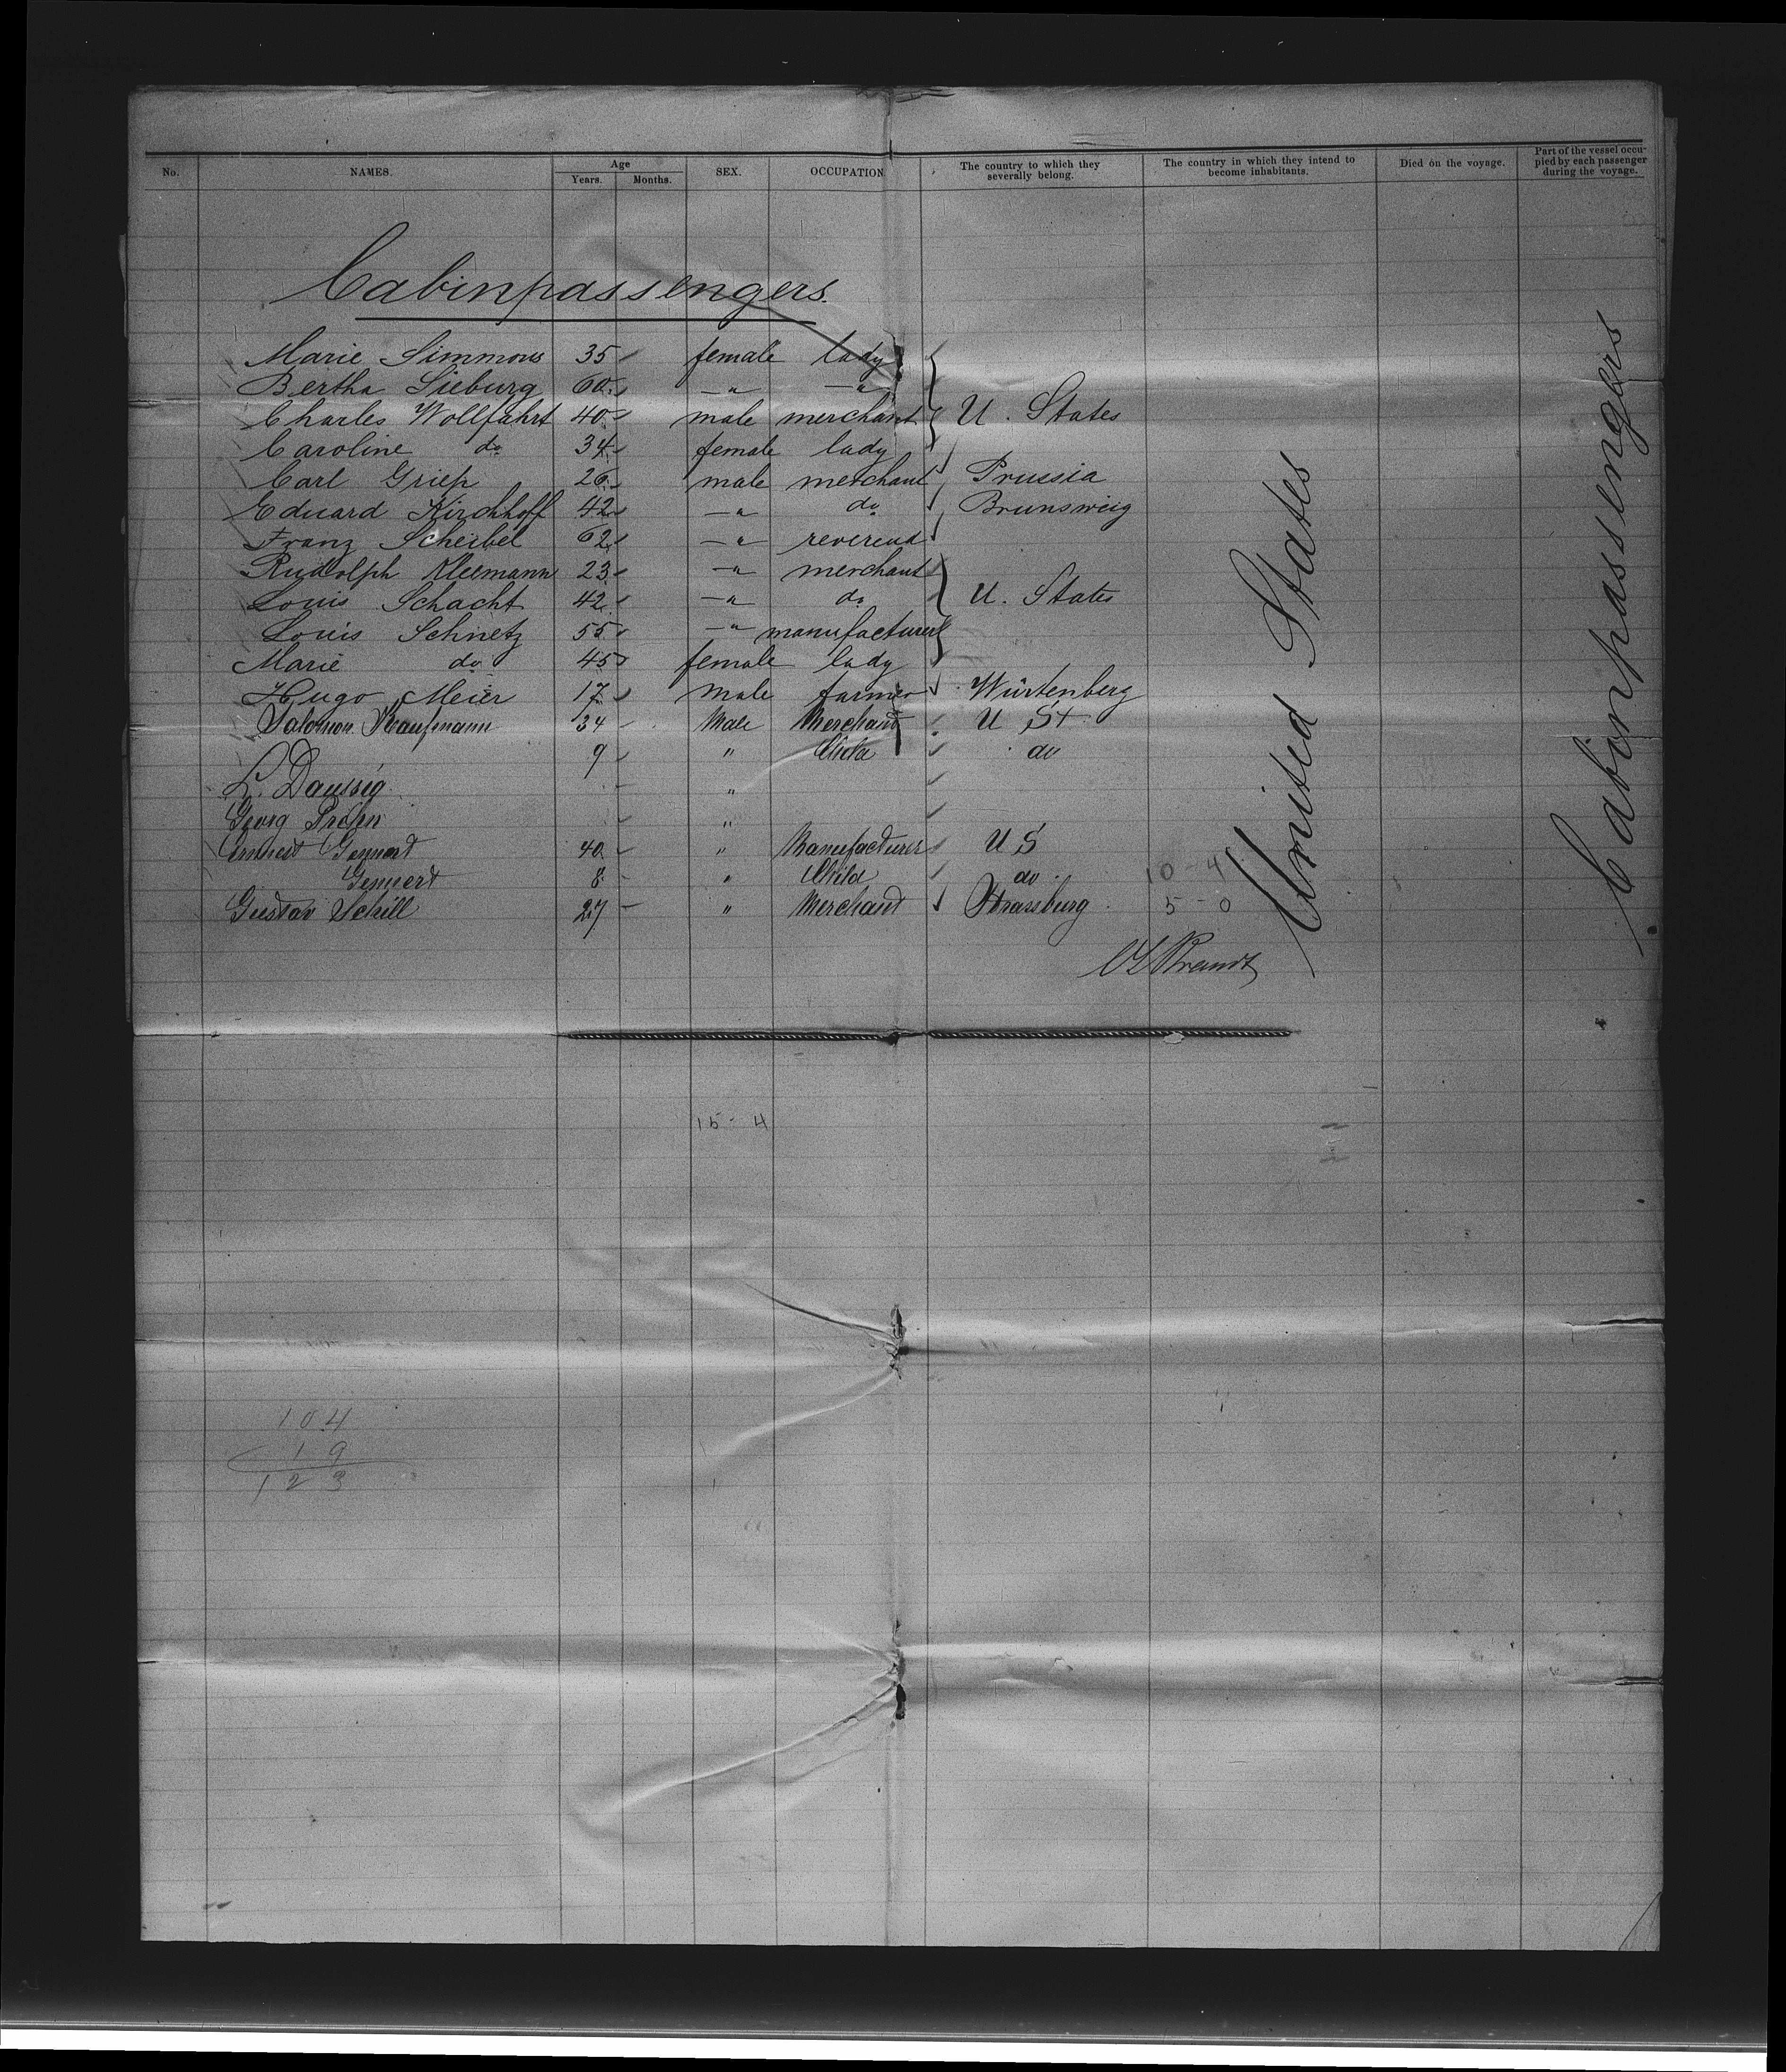 No. NAMES. Age Years. Months. SEX. OCCUPATION The country to which they severally belong. The country in which they intend to become inhabitants. Died on the voyage. Part of the vessel occupied by each passenger during the voyage.
Cabinpassengers.
Marie Simmons 35 female lady
Bertha Sieburg 60 — " — "
Charles Wollfahrt 40 male merchant U. States
Caroline do 34 female lady
Carl Griep 26 male merchant Prussia
Eduard Kirchhoff 42 — " do Brunsweig
Franz Scheibel 62 — " reverend
Rudolph Kleemann 23 — " merchant
Louis Schacht 42 — " do U. States
Louis Schnetz 55 — " manufacturer
Marie do 45 female lady
Hugo Meier 17 male farmer Würtenberg
Salomon Kaufmann 34 Male Merchant U St
9 " do
L. Daussig "
Georg "
Gennert 40 " Manufacturer U S
Gennert 8 " Child do 10 - 4
Gustav Schill 27 " Merchant Strassburg 5 - 0
Brandt
United States
Cabinpassengers
15 - 4
104
19
123